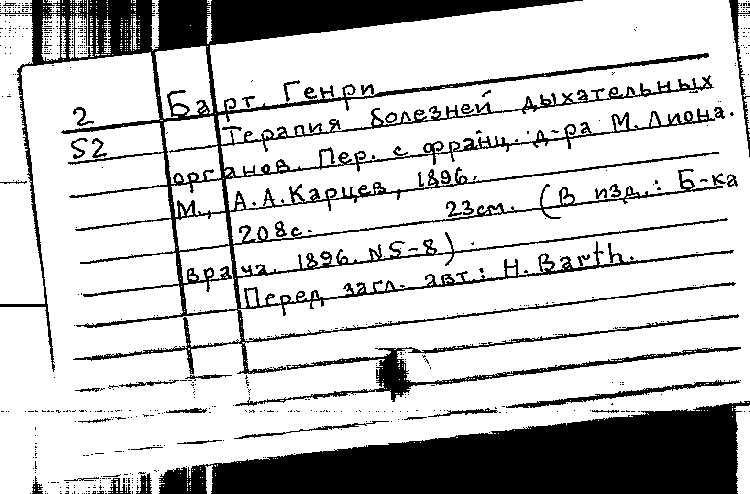 2 Барт. Генри
52 Терапия болезней дыхательных
органов. Пер. с франц. д-ра М. Лиона.
М., А.А.Карцев, 1896.
208с. 23см. (В изд.: Б-ка
врача. 1896. N5-8)
Перед загл. авт.: H. Barth.